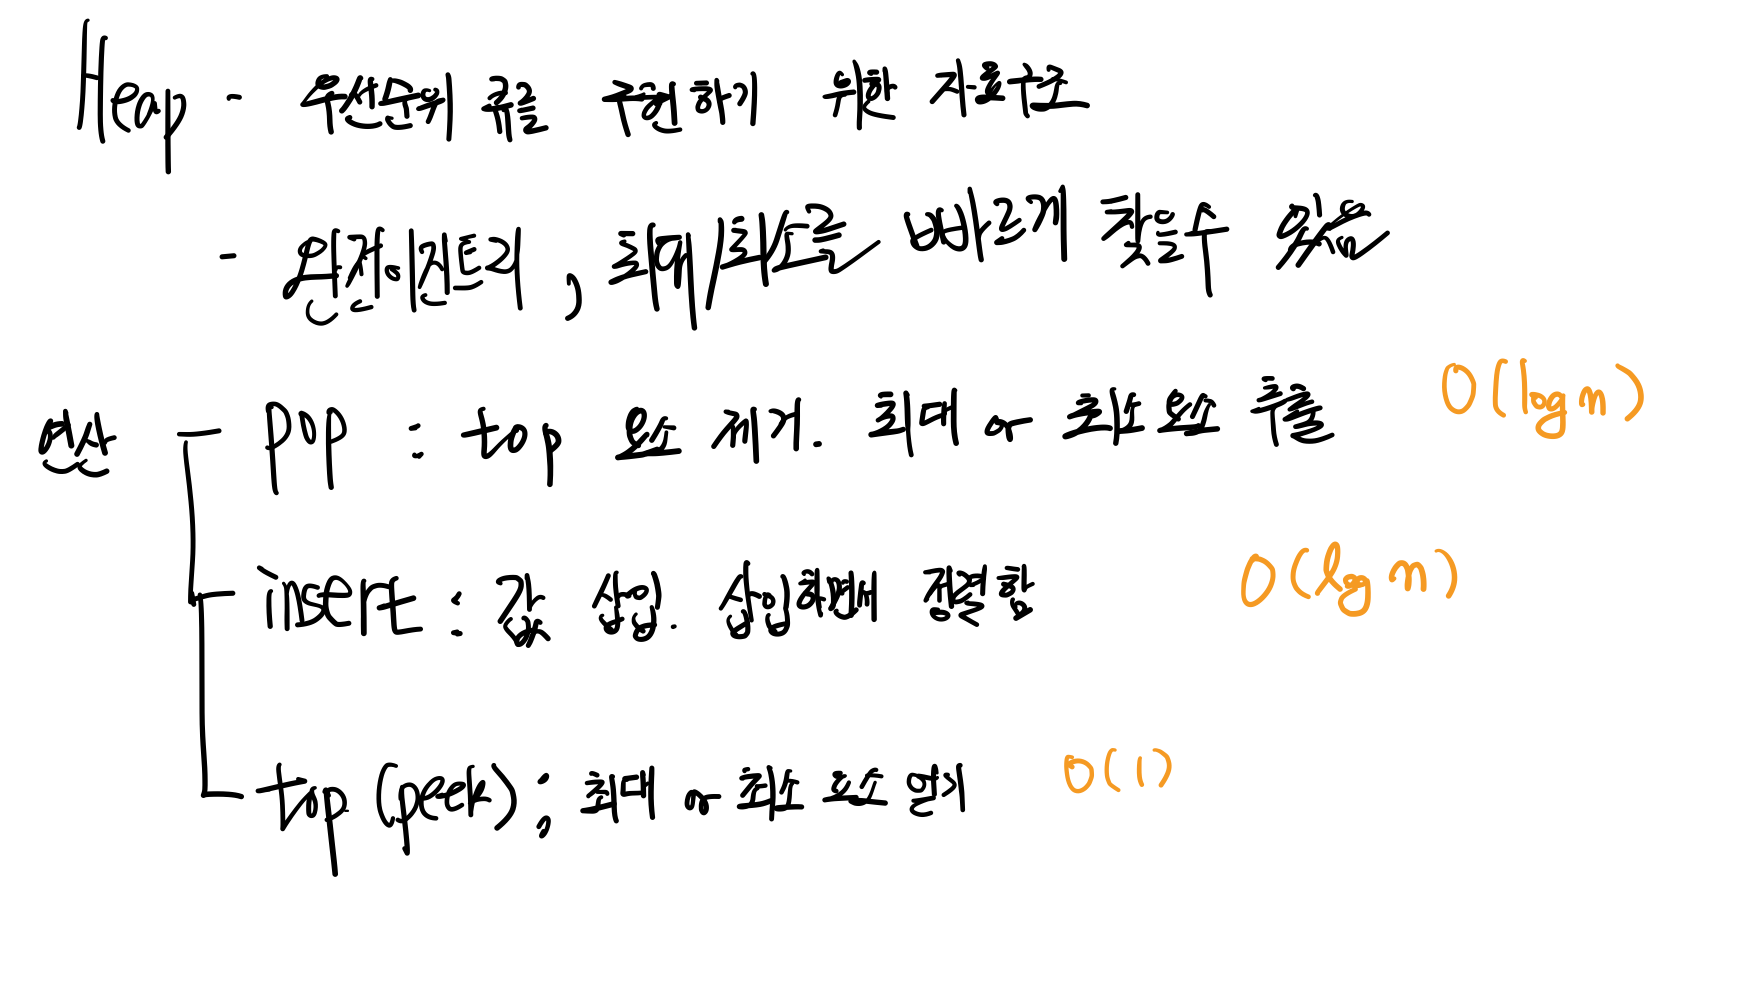 Heap - 우선순위 큐를 구현하기 위한 자료구조
- 완전이진트리, 최대/최소를 빠르게 찾을수 있음
연산 - pop : top 요소 제거. 최대 or 최소 요소 추출 O(log n)
- insert : 값 삽입. 삽입하면서 정렬함 O(log n)
- top (peek) ; 최대 or 최소 요소 얻기 O(1)